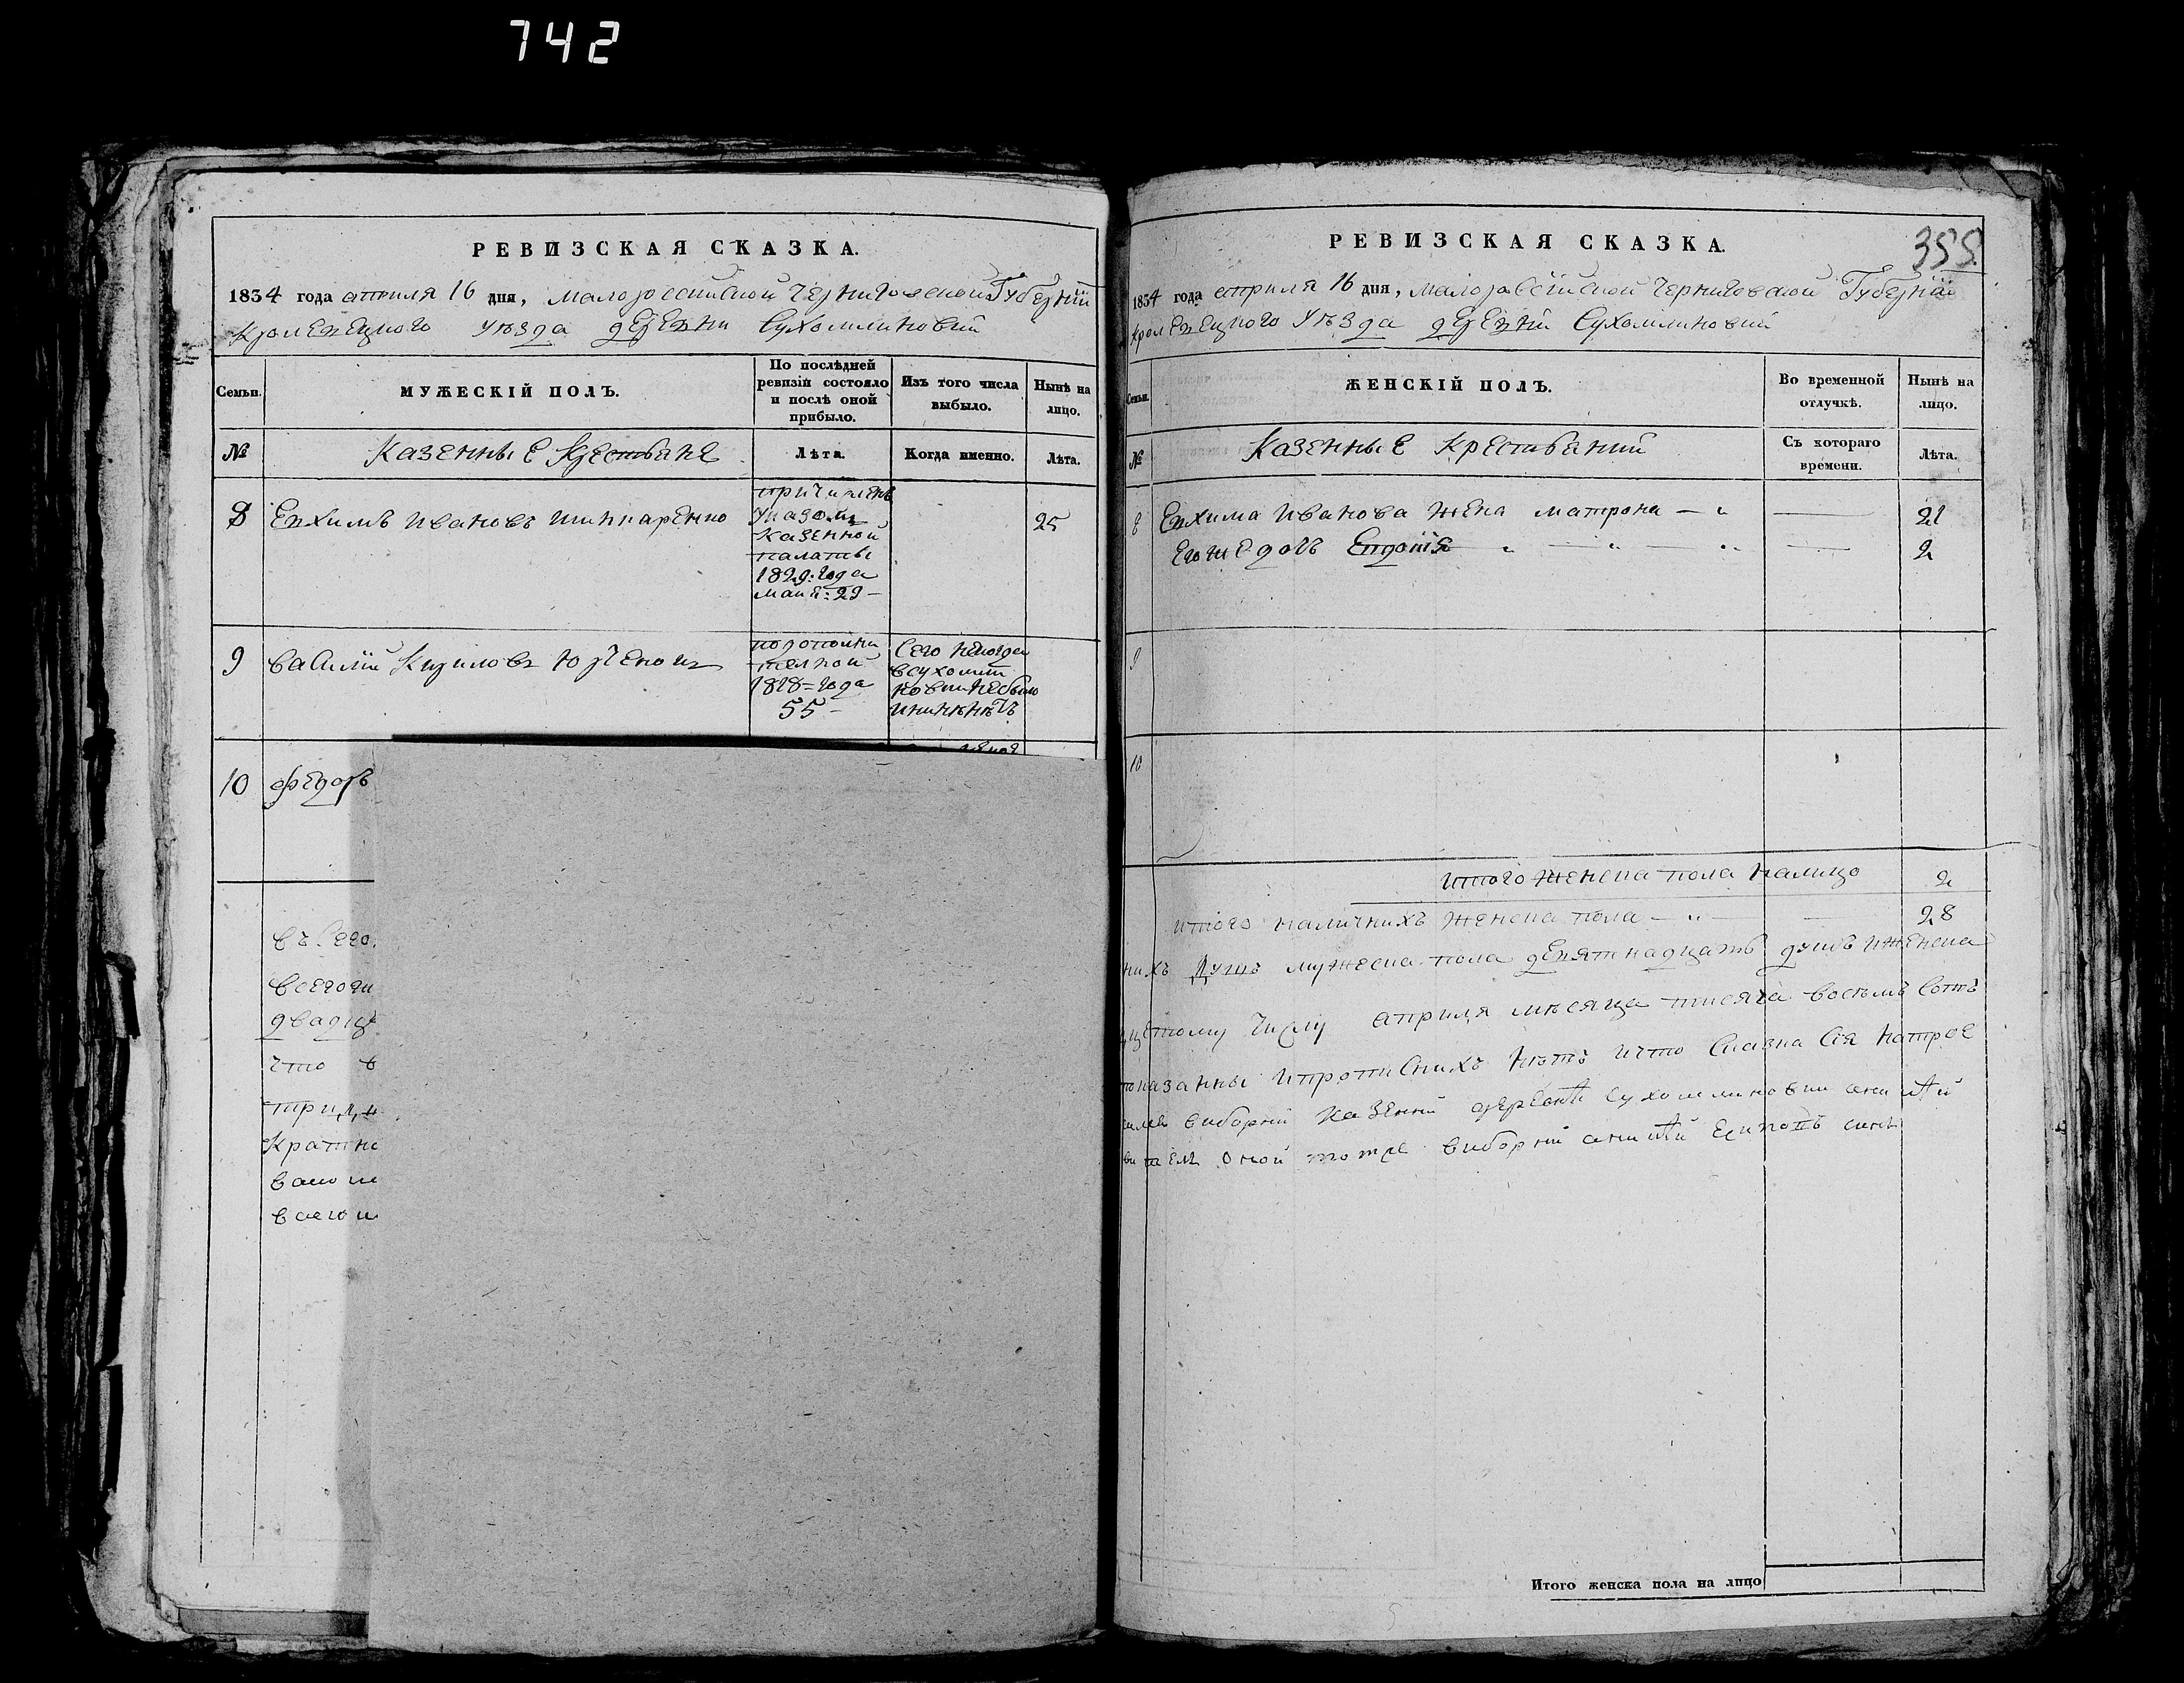 742
РЕВИЗСКАЯ СКАЗКА.
1834 года априля 16 дня, малороссийской Черниговской Губерний
Кролевецкого уѣзда деревни Сухомлиновки
Семьи.
МУЖЕСКІЙ ПОЛЪ.
По послѣдней ревизіи состояло и послѣ оной прибыло.
Изъ того числа выбыло.
Нынѣ на лицо.
№
Казенные Крестьяне
Лѣта.
Когда именно.
Лѣта.
8
Евхимъ Ивановъ Шинкаренко
причиленъ
указомъ
казенной
палаты
1829: года
майя: 29 –
25
9
Василий Кирилов
подополни
телной
1828 = года
55 –
сего некогда
в сухомли
новки небыло
10
Федоръ
всегочи
двадц
что в
Кратно
РЕВИЗСКАЯ СКАЗКА.
355.
1834 года априля 16 дня, малороссійской Черниговской Губерній
Кролевецкого уѣзда деревни Сухомлиновки
Семьи.
ЖЕНСКІЙ ПОЛЪ.
Во временной отлучкѣ.
Нынѣ на лицо.
№
Казенные Крестьяний
Съ котораго времени.
Лѣта.
8
Евхима Иванова жена матрона –
21
Его же дочь Евдокія
2
9
10
Итого женска пола налицо
2
Итого наличнихъ женска пола –
28
нихъ душъ мужеска пола девятнадцать душъ и женска
числу априля мѣсяца тисяча восемъ сотъ
показанны и прописнихъ нѣтъ и что сказка сія натрое
виборній казенній деревнѣ Сухомлиновки
оной виборній
Итого женска пола на лицо